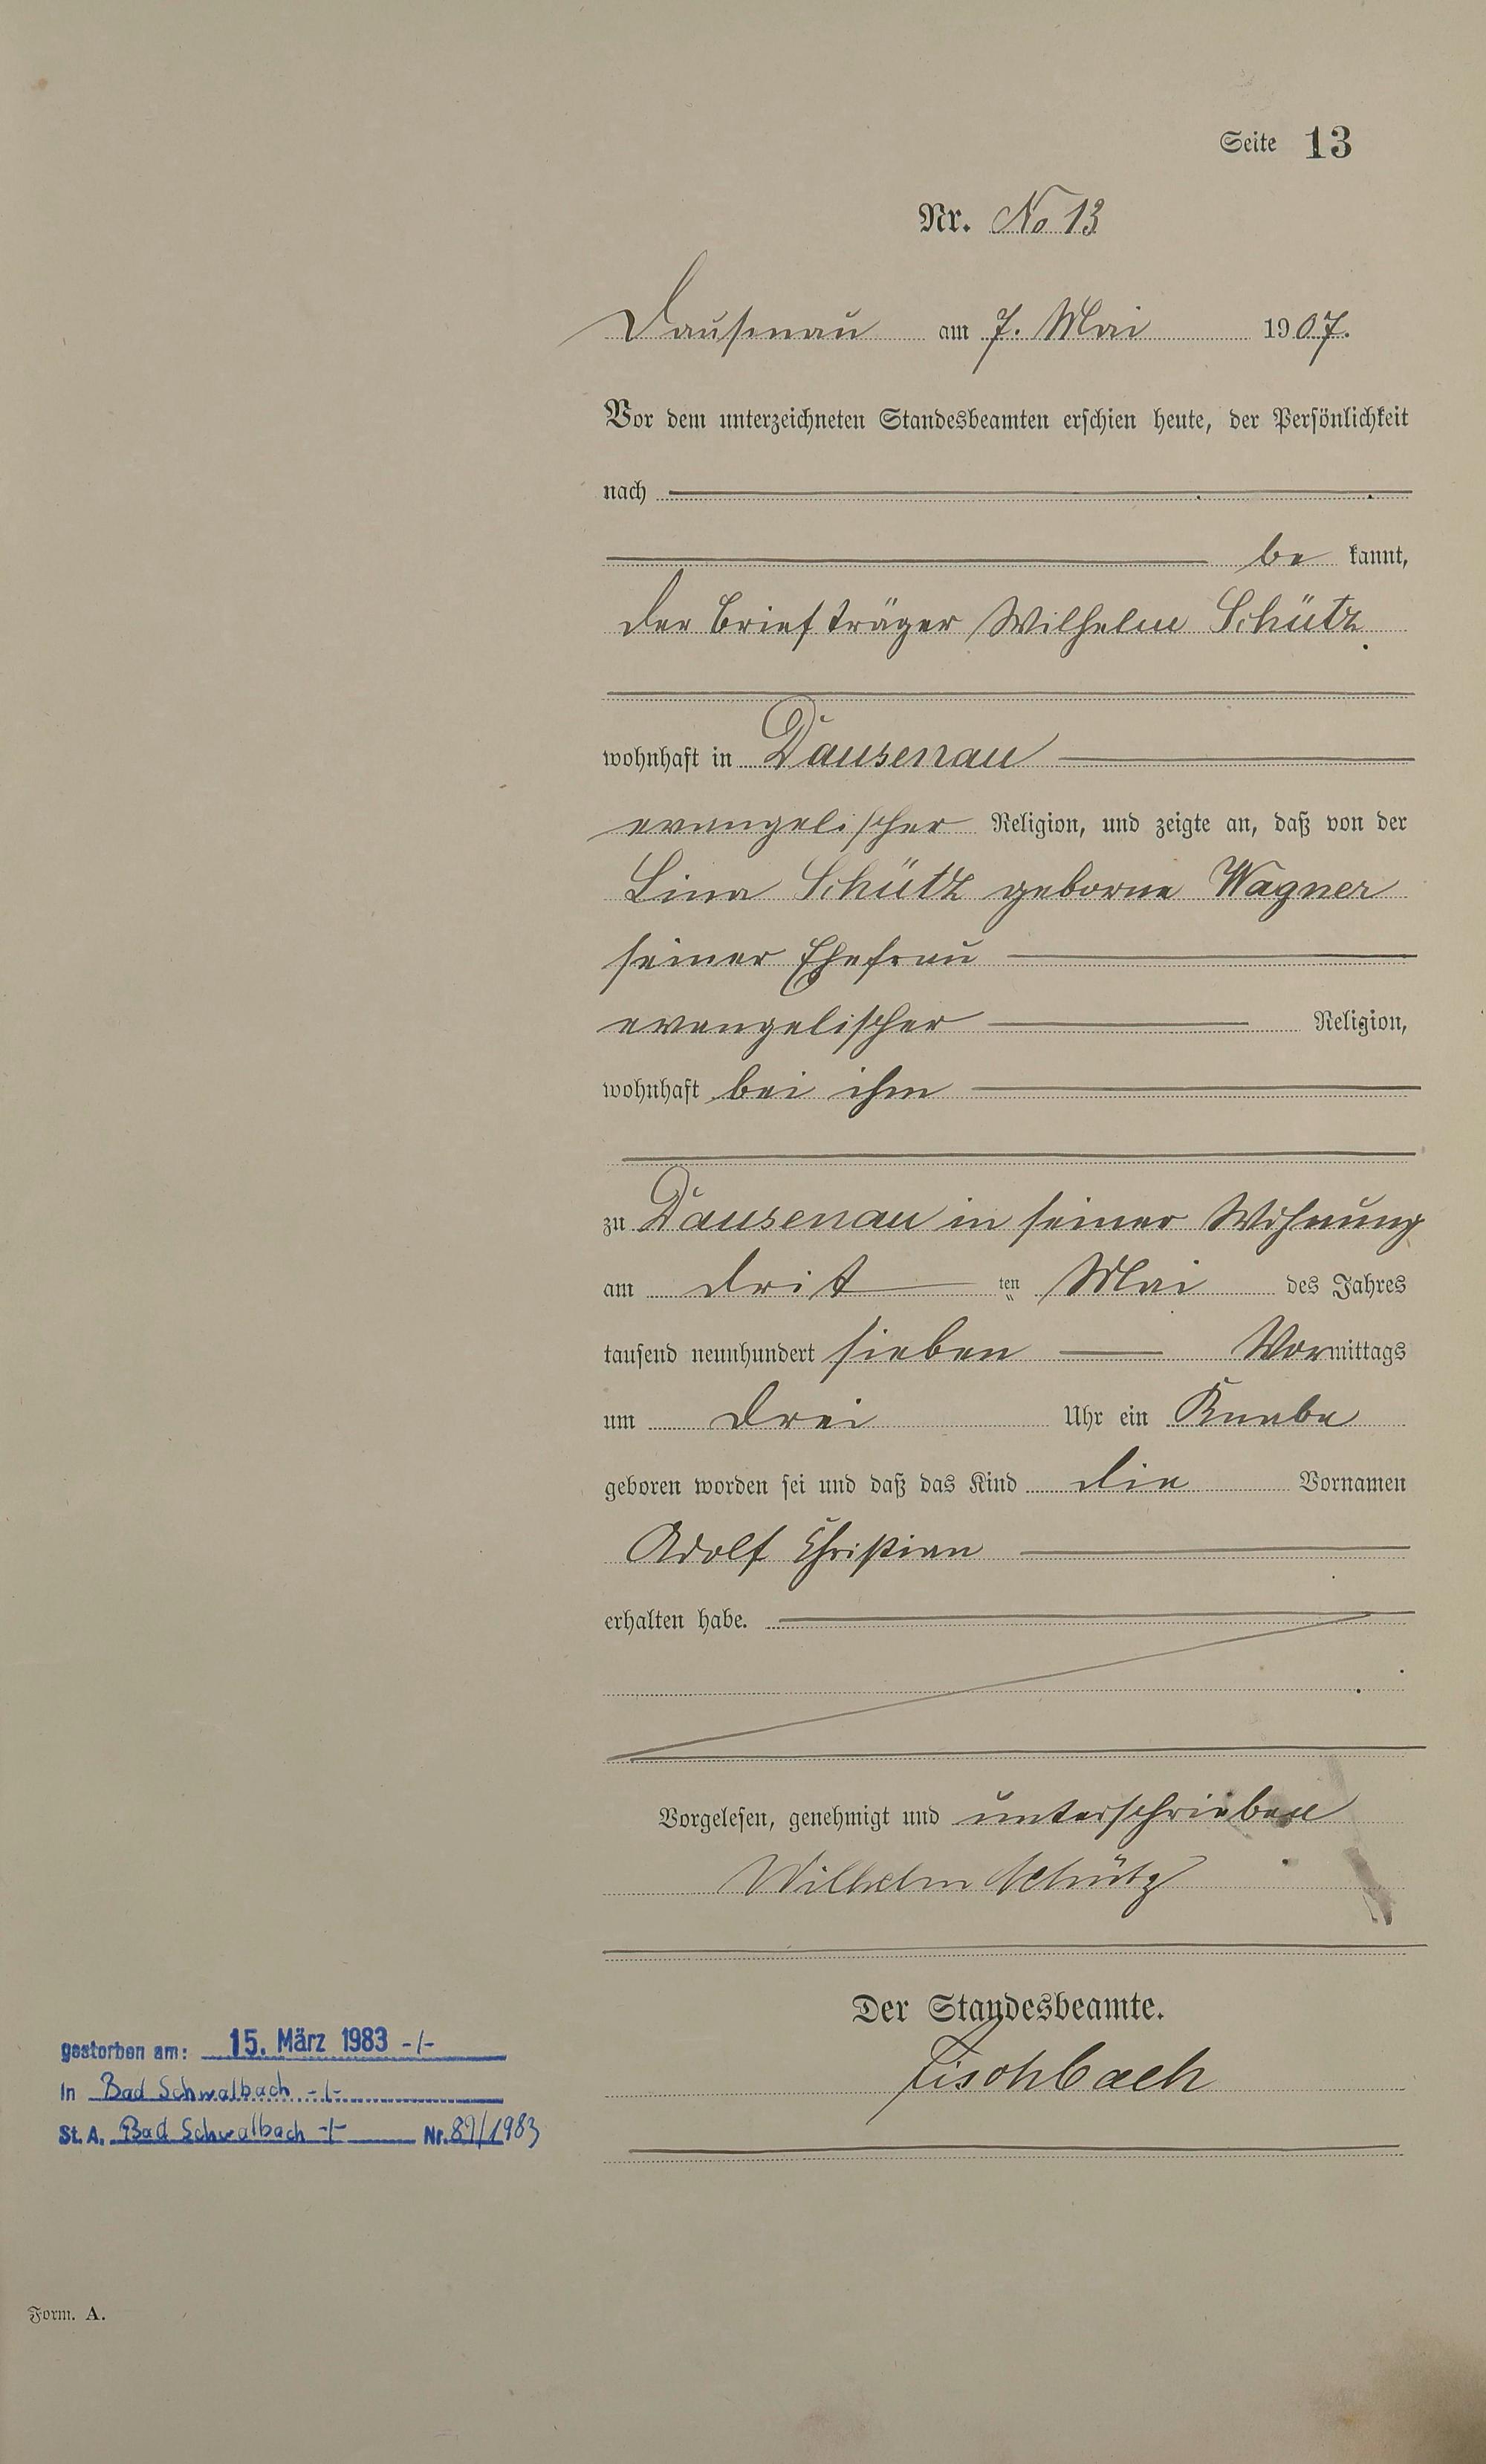 Seite 13
Nr. No 13
Dausenau am 7. Mai 1907.
Vor dem unterzeichneten Standesbeamten erschien heute, der Persönlichkeit
nach
be kannt,
der Briefträger Wilhelm Schütz
wohnhaft in Dausenau
evangelischer Religion, und zeigte an, daß von der
Lina Schütz geborne Wagner
seiner Ehefrau
evangelischer Religion,
wohnhaft bei ihm
zu Dausenau in seiner Wohnung
am dritt ten Mai des Jahres
tausend neunhundert sieben Vormittags
um drei Uhr ein Knabe
geboren worden sei und daß das Kind die Vornamen
Adolf Christian
erhalten habe.
Vorgelesen, genehmigt und unterschrieben
Wilhelm Schütz
Der Standesbeamte.
Fischbach
gestorben am: 15. März 1983 -/-
in Bad Schwalbach -/-
St. A. Bad Schwalbach -/- Nr. 89/1983
Form. A.